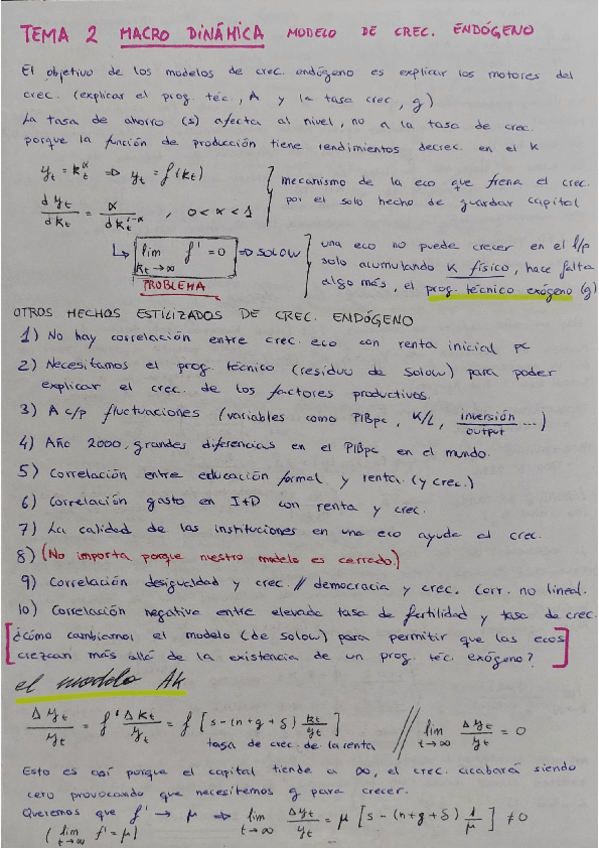 TEMA 2 MACRO DINÁMICA MODELO DE CREC. ENDÓGENO
El objetivo de los modelos de crec. endógeno es explicar los motores del
crec. (explicar el prog. téc., A y la tasa crec, g)
La tasa de ahorro (s) afecta al nivel, no a la tasa de crec.
porque la función de producción tiene rendimientos decrec. en el K
y_t = k_t^α ⇒ y_t = f(k_t)
d y_t / d k_t = α / d k_t^{1-α} , 0 < α < 1
mecanismo de la eco que frena el crec.
por el solo hecho de guardar capital
↳ lim k_t→∞ f' = 0 ⇒ SOLOW
PROBLEMA
una eco no puede crecer en el l/p
solo acumulando K físico, hace falta
algo más, el prog. técnico exógeno (g)
OTROS HECHOS ESTILIZADOS DE CREC. ENDÓGENO
1) No hay correlación entre crec. eco con renta inicial pc
2) Necesitamos el prog. técnico (residuo de Solow) para poder
explicar el crec. de los factores productivos.
3) A c/p fluctuaciones (variables como PIBpc, K/L, inversión/output ...)
4) Año 2000, grandes diferencias en el PIBpc en el mundo.
5) Correlación entre educación formal y renta. (y crec.)
6) Correlación gasto en I+D con renta y crec.
7) La calidad de las instituciones en una eco ayuda al crec.
8) (No importa porque nuestro modelo es cerrado.)
9) Correlación desigualdad y crec. // democracia y crec. Corr. no lineal.
10) Correlación negativa entre elevada tasa de fertilidad y tasa de crec.
¿cómo cambiamos el modelo (de solow) para permitir que las ecos
crezcan más allá de la existencia de un prog. téc. exógeno?
el modelo AK
Δy_t / y_t = f' Δk_t / y_t = f' [s - (n+g+δ) k_t / y_t] // lim t→∞ Δy_t / y_t = 0
tasa de crec. de la renta
Esto es así porque el capital tiende a ∞, el crec. acabará siendo
cero provocando que necesitemos g para crecer.
Queremos que f' → μ ⇒ lim t→∞ Δy_t / y_t = μ [s - (n+g+δ) 1/μ] ≠ 0
(lim t→∞ f' = μ)